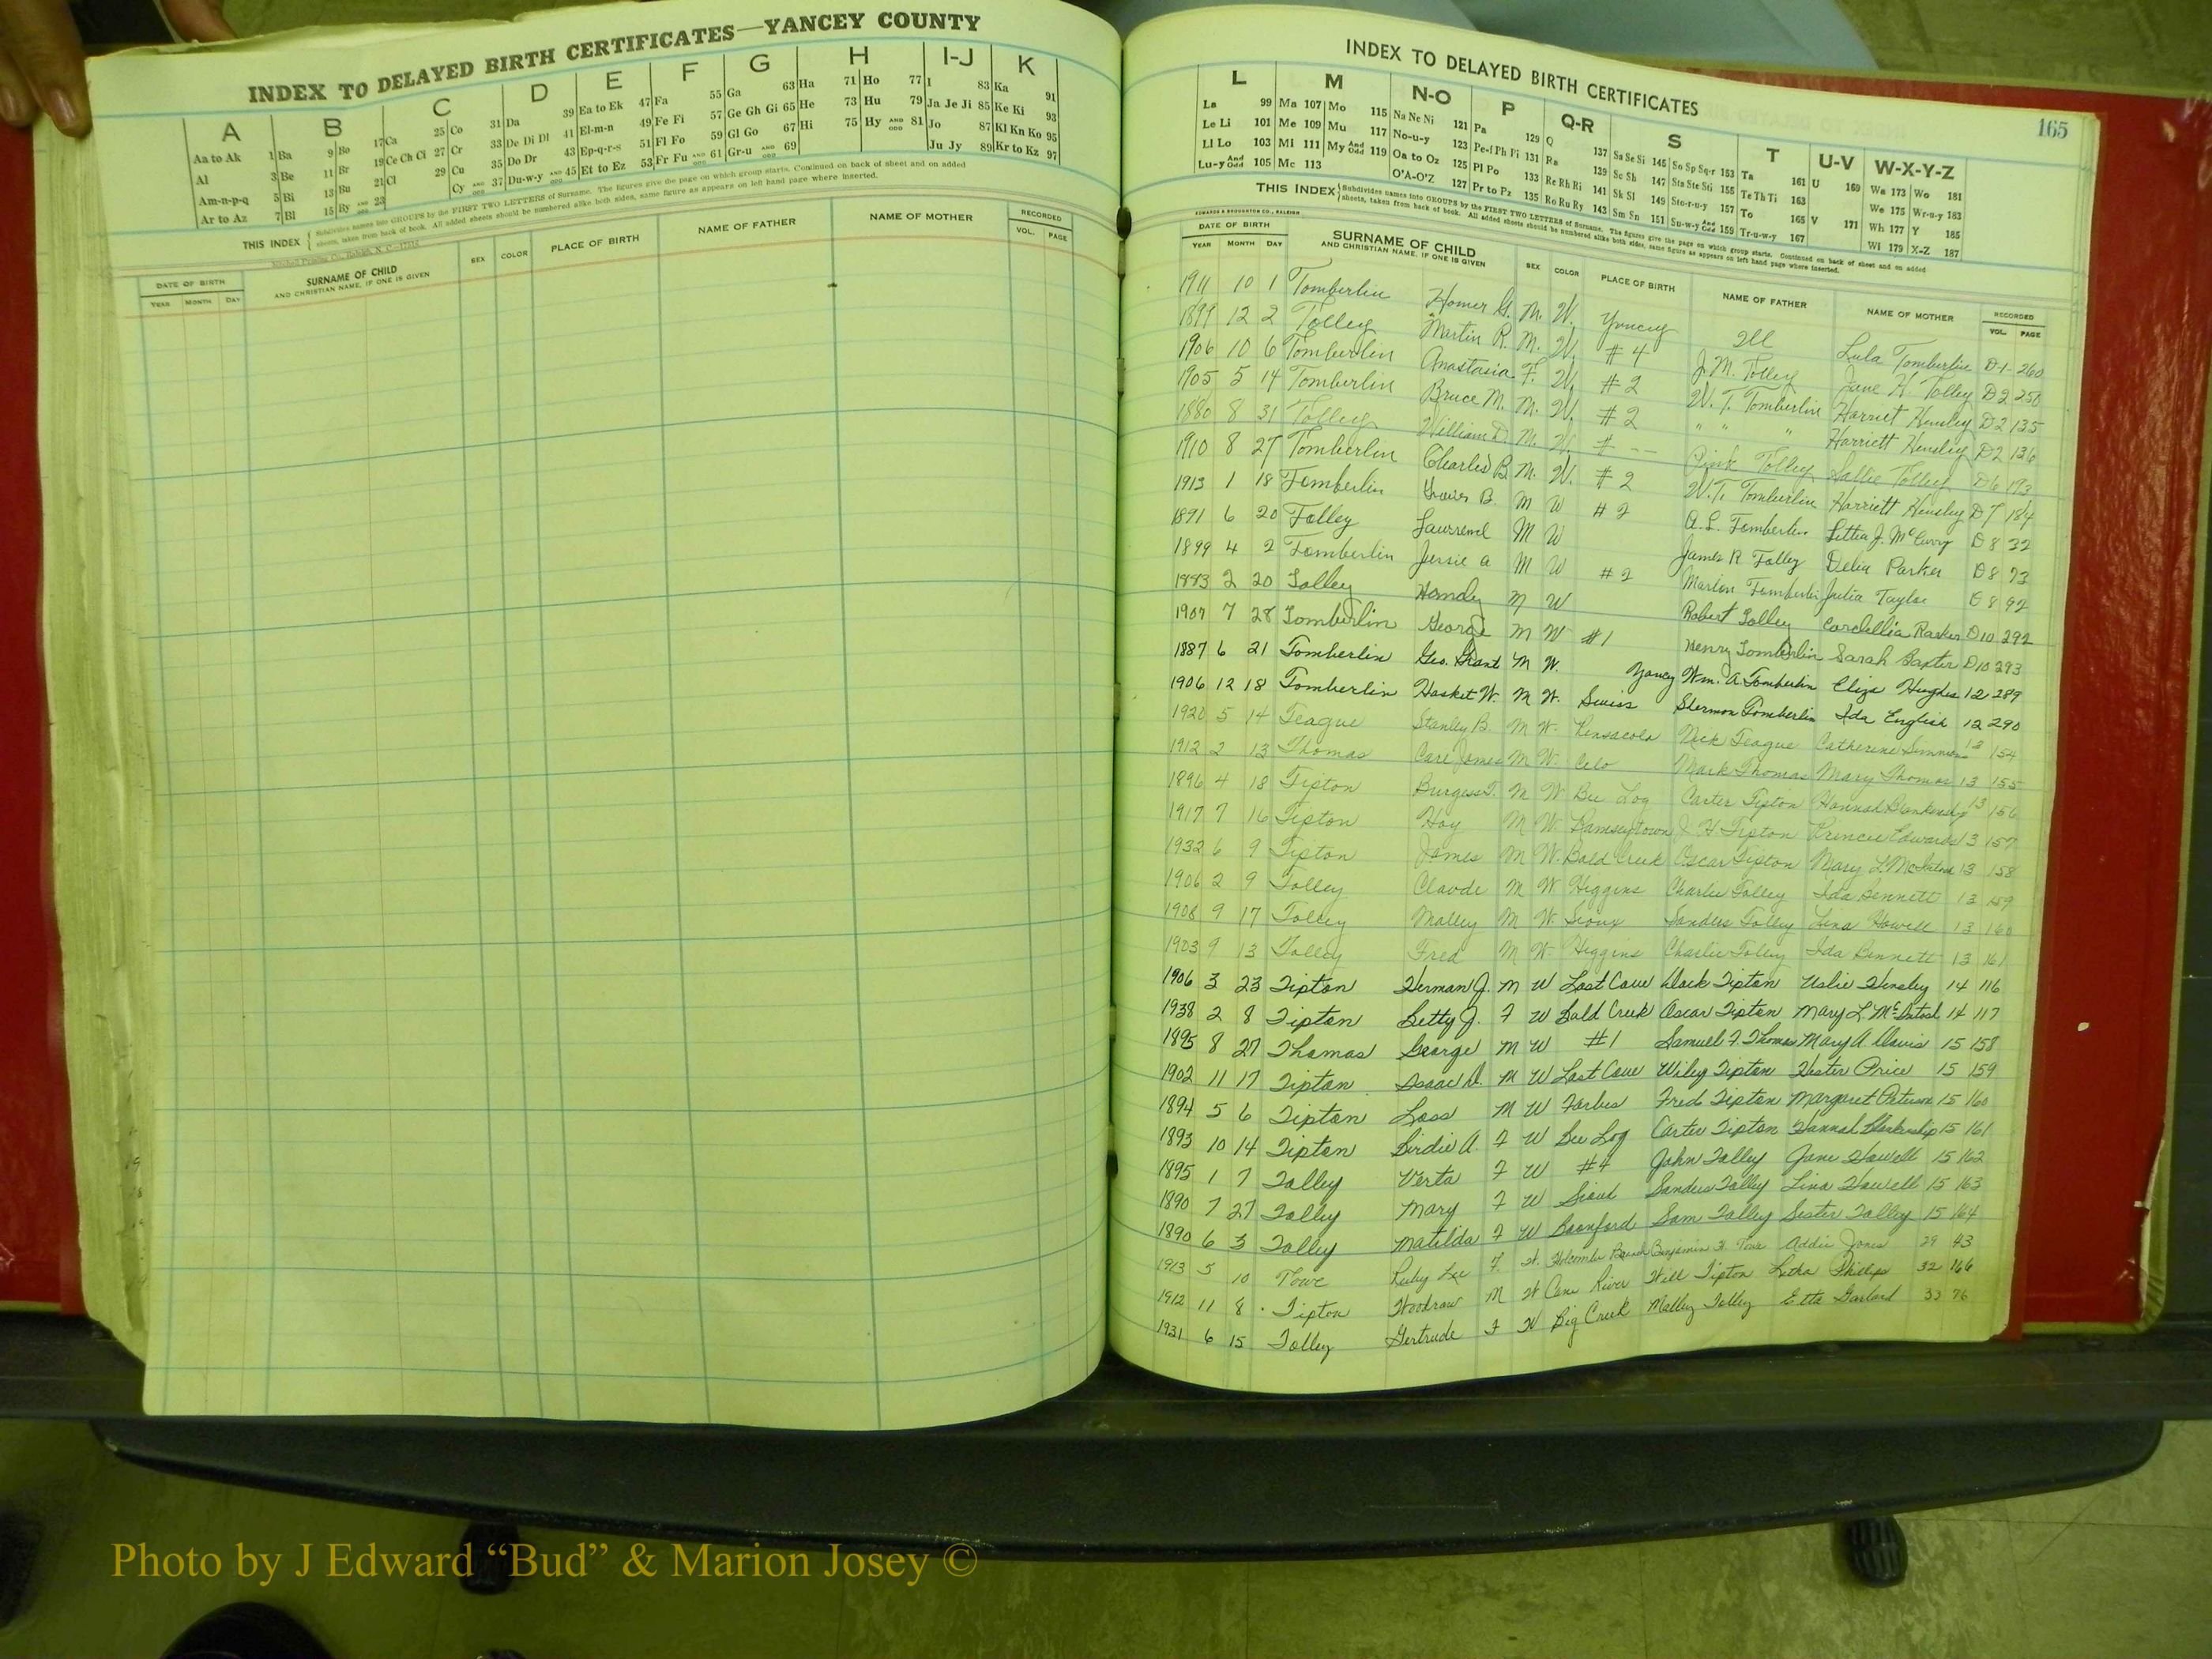 INDEX TO DELAYED BIRTH CERTIFICATES—YANCEY COUNTY
A B C D E F G H I-J K
Aa to Ak 1 Ba 9 Bo 17 Ca 25 Co 31 Da 39 Ea to Ek 47 Fa 55 Ga 63 Ha 71 Ho 77 I 83 Ka 91
Al 3 Be 11 Br 19 Ce Ch Ci 27 Cr 33 De Di Dl 41 El-m-n 49 Fe Fi 57 Ge Gh Gi 65 He 73 Hu 79 Ja Je Ji 85 Ke Ki 93
Am-n-p-q 5 Bi 13 Bu 21 Cl 29 Cu 35 Do Dr 43 Ep-q-r-s 51 Fl Fo 59 Gl Go 67 Hi 75 Hy AND ODD 81 Jo 87 Kl Kn Ko 95
Ar to Az 7 Bl 15 By AND ODD 23 Cy AND ODD 37 Du-w-y AND ODD 45 Et to Ez 53 Fr Fu AND ODD 61 Gr-u AND ODD 69 Ju Jy 89 Kr to Kz 97
THIS INDEX Subdivides names into GROUPS by the FIRST TWO LETTERS of Surname. The figures give the page on which group starts. Continued on back of sheet and on added
sheets, taken from back of book. All added sheets should be numbered alike both sides, same figure as appears on left hand page where inserted.
DATE OF BIRTH SURNAME OF CHILD SEX COLOR PLACE OF BIRTH NAME OF FATHER NAME OF MOTHER RECORDED
YEAR MONTH DAY AND CHRISTIAN NAME, IF ONE IS GIVEN VOL. PAGE
INDEX TO DELAYED BIRTH CERTIFICATES
165
L M N-O P Q-R S T U-V W-X-Y-Z
La 99 Ma 107 Mo 115 Na Ne Ni 121 Pa 129 Q 137 Sa Se Si 145 So Sp Sq-r 153 Ta 161 U 169 Wa 173 Wo 181
Le Li 101 Me 109 Mu 117 No-u-y 123 Pe-f Ph Pi 131 Ra 139 Sc Sh 147 Sta Ste Sti 155 Te Th Ti 163 We 175 Wr-u-y 183
Ll Lo 103 Mi 111 My And Odd 119 Oa to Oz 125 Pl Po 133 Re Rh Ri 141 Sk Sl 149 Sto-r-u-y 157 To 165 V 171 Wh 177 Y 185
Lu-y And Odd 105 Mc 113 O'A-O'Z 127 Pr to Pz 135 Ro Ru Ry 143 Sm Sn 151 Su-w-y And Odd 159 Tr-u-w-y 167 Wi 179 X-Z 187
THIS INDEX Subdivides names into GROUPS by the FIRST TWO LETTERS of Surname. The figures give the page on which group starts. Continued on back of sheet and on added
sheets, taken from back of book. All added sheets should be numbered alike both sides, same figure as appears on left hand page where inserted.
EDWARDS & BROUGHTON CO., RALEIGH
DATE OF BIRTH SURNAME OF CHILD SEX COLOR PLACE OF BIRTH NAME OF FATHER NAME OF MOTHER RECORDED
YEAR MONTH DAY AND CHRISTIAN NAME, IF ONE IS GIVEN VOL. PAGE
1911 10 1 Tomberlin Homer G. M. W. Yancey Lula Tomberlin D-1- 260
1899 12 2 Tolley Martin R. M. W. # 4 J. M. Tolley Jane H. Tolley D2 250
1906 10 6 Tomberlin Anastasia F. W. # 2 W. T. Tomberlin Harriet Hensley D2 135
1905 5 14 Tomberlin Bruce M. M. W. # 2 " " " Harriett Hensley D2 136
1880 8 31 Tolley William D. M. W. # -- Pink Tolley Sallie Tolley D6 193
1910 8 27 Tomberlin Charles B M. W. # 2 W. T. Tomberlin Harriett Hensley D7 184
1913 1 18 Tomberlin B. M W # 2 A. L. Tomberlin Littia J. McCurry D8 32
1891 6 20 Tolley M W James R Tolley Delia Parker D8 73
1899 4 2 Tomberlin Jessie A M W # 2 Marlon Tomberlin Julia Taylor D8 92
1883 2 20 Tolley M W Robert Tolley Cordellia D10 292
1907 7 28 Tomberlin George M W #1 Henry Tomberlin Sarah Baxter D10 293
1887 6 21 Tomberlin Geo. Grant M W. Yancey Wm. A. Tomberlin Eliza Hughes 12 289
1906 12 18 Tomberlin Hasket W. M W. Swiss Shermon Tomberlin Ida English 12 290
1920 5 14 Teague Stanley B. M W. Pensacola Nick Teague Catherine Simmons 13 154
1912 2 13 Thomas Carl James M W. Celo Mark Thomas Mary Thomas 13 155
1896 4 18 Tipton Burgess T. M W. Bee Log Carter Tipton Hannah Blankenship 13 156
1917 7 16 Tipton Hoy M W. Ramseytown J H Tipton Princie Edwards 13 157
1932 6 9 Tipton James M W. Bald Creek Oscar Tipton Mary L. McIntosh 13 158
1906 2 9 Tolley Claude M W Higgins Charlie Tolley Ida Bennett 13 159
1908 9 17 Tolley Malley M W. Sioux Sanders Tolley Lina Howell 13 160
1903 9 13 Tolley Fred M W. Higgins Charlie Tolley Ida Bennett 13 161
1906 3 23 Tipton Herman J. M W Lost Cove Dock Tipton Uslie Hensley 14 116
1938 2 8 Tipton Betty J. F W Bald Creek Oscar Tipton Mary L McIntosh 14 117
1895 8 27 Thomas George M W #1 Samuel F. Thomas Mary A. Davis 15 158
1902 11 17 Tipton Isaac D. M W Lost Cove Wiley Tipton Hester Price 15 159
1894 5 6 Tipton Loss M W Forbes Fred Tipton Margaret Peterson 15 160
1893 10 14 Tipton Birdie A. F W Bee Log Carter Tipton Hannah Blankenship 15 161
1895 1 7 Tolley Verta F W #4 John Tolley Jane Howell 15 162
1890 7 27 Tolley Mary F W Sioux Sanders Tolley Lina Howell 15 163
1890 6 3 Tolley Matilda F W Boonford Sam Tolley Sister Tolley 15 164
1913 5 10 Towe Ruby Lee F W. Holcombe Branch Benjamin H. Towe Addie Jones 29 43
1912 11 8 Tipton Woodrow M W Cane River Will Tipton Letha Phillips 32 166
1931 6 15 Tolley Gertrude F W Big Creek Malley Tolley Etta Garland 33 76
Photo by J Edward “Bud” & Marion Josey ©